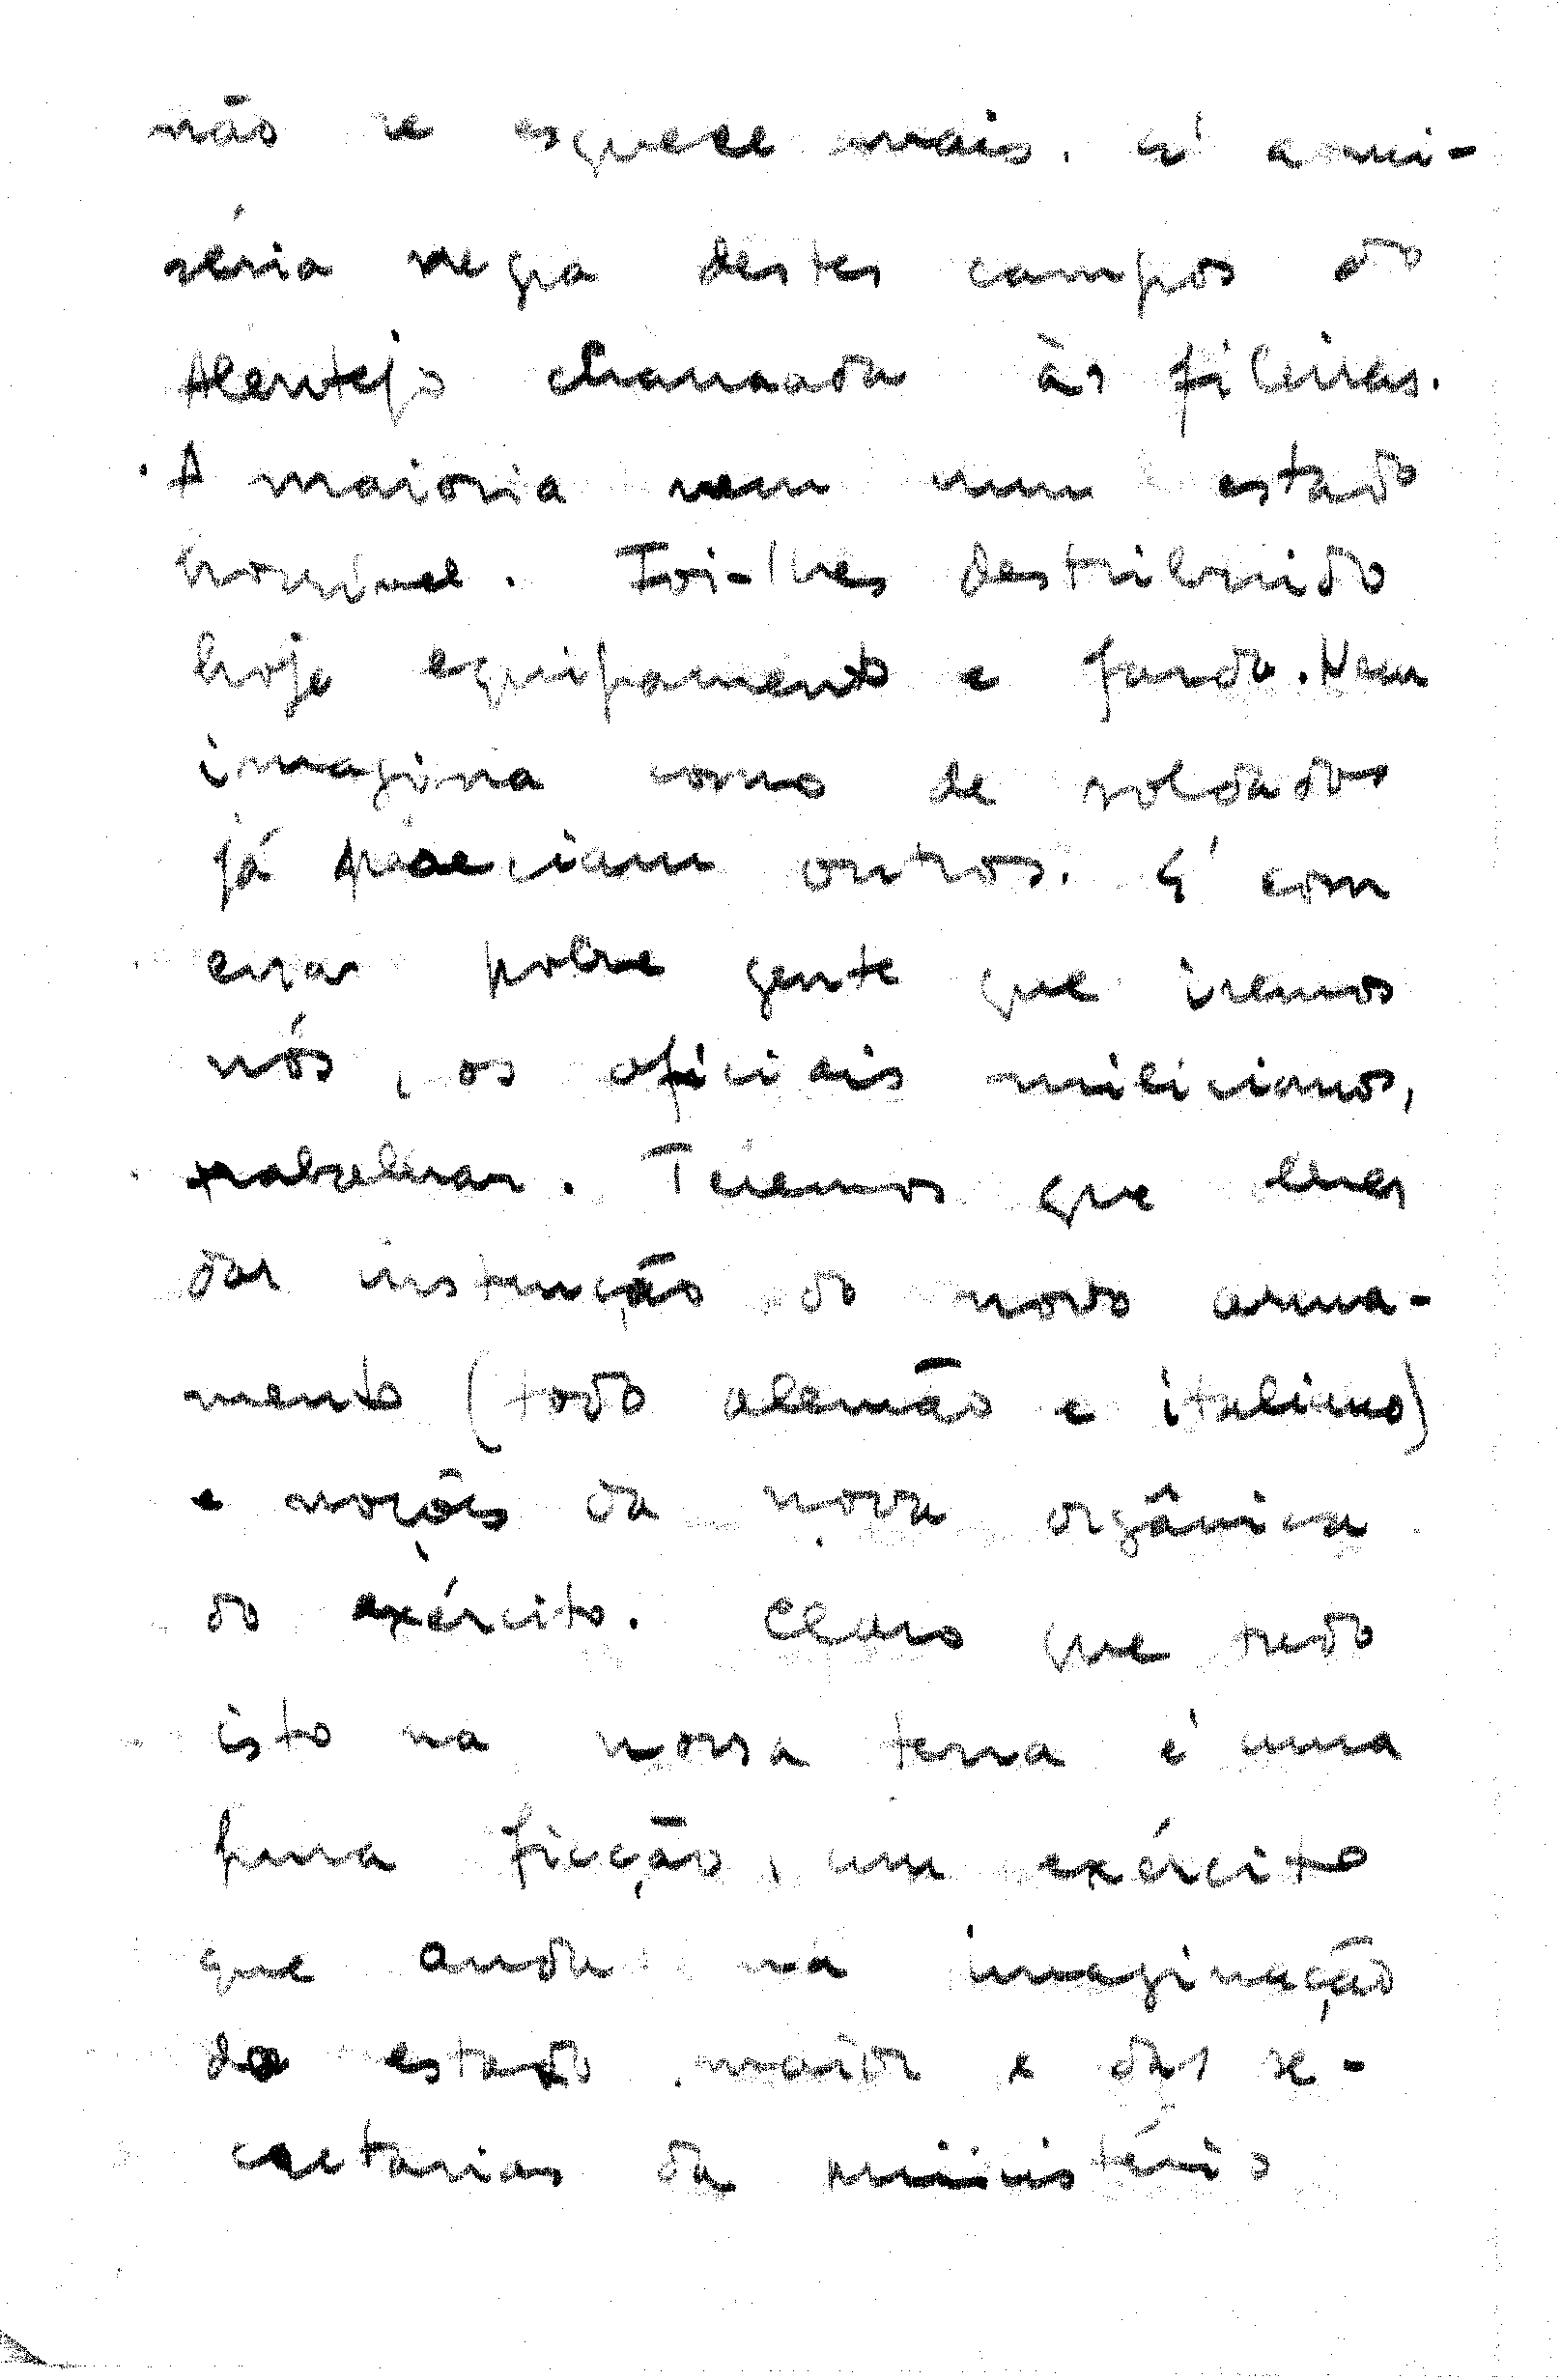 não se esquece mais. É a mi-
séria negra destes campos do
Alentejo chamada às fileiras.
A maioria vem num estado
horrível. Foi-lhes destribuido
hoje equipamento e farda. Nem
imagina como de soldados
já pareciam outros. É com
essa pobre gente que iremos
nós, os oficiais milicianos,
trabalhar. Teremos que lhes
dar instrução do novo arma-
mento (todo alemão e italiano)
e noções da nova orgânica
do exército. Claro que tudo
isto na nossa terra é uma
pura ficção, um exército
que anda na imaginação
do estado maior e das se-
cretarias do ministério